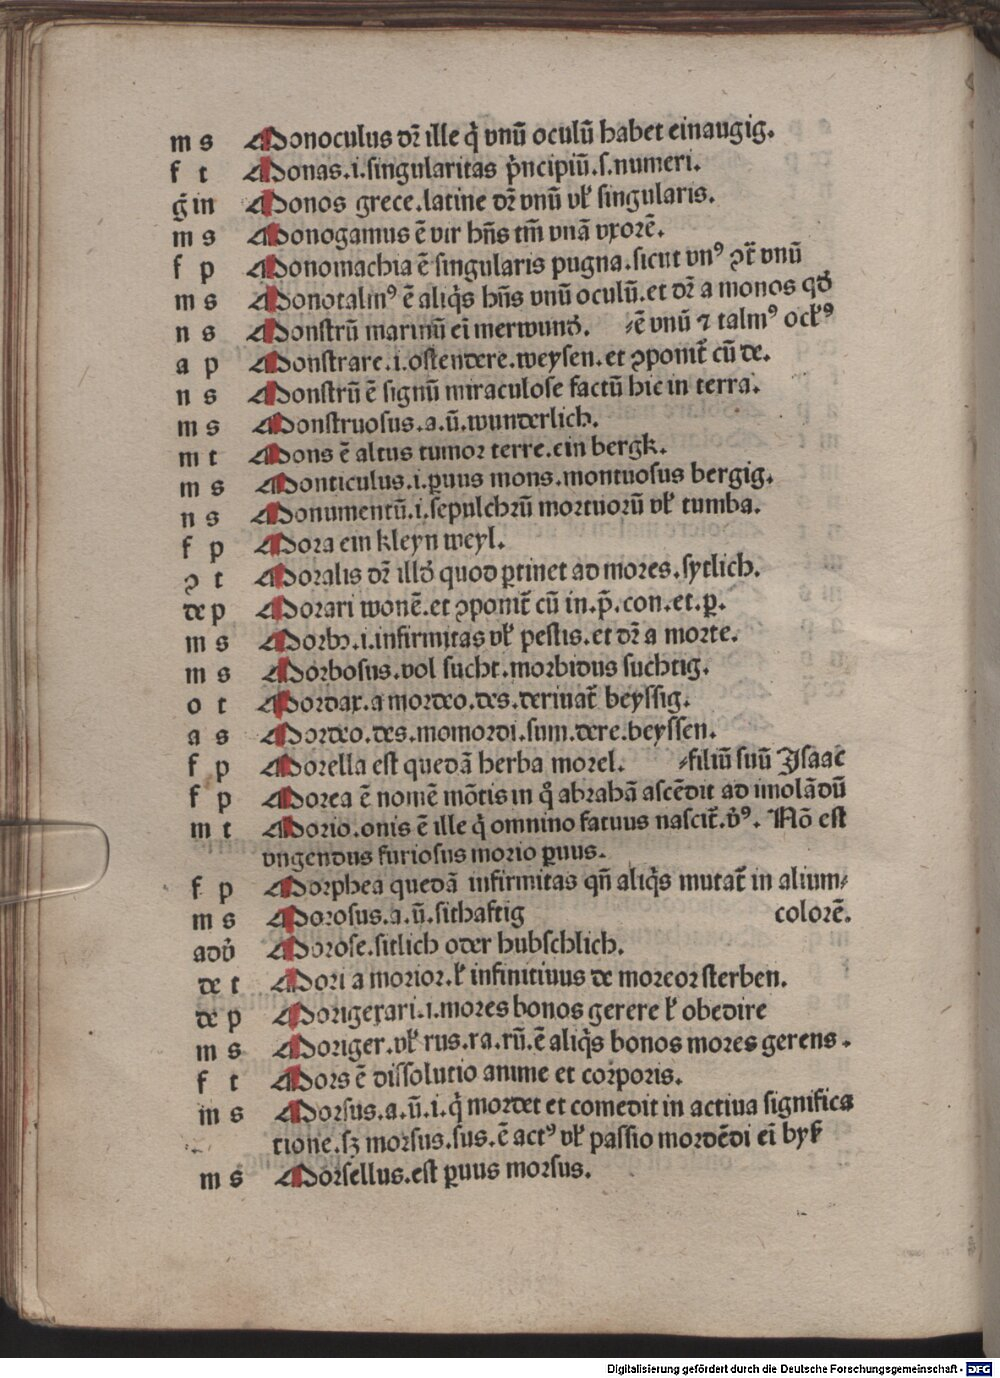 m s Monoculus dr̄ ille q̇ vnū oculū habet einaugig.
f t Monas.i.singularitas p̉ncipiū.s.numeri.
ḡ in Monos grece.latine dr̄ vnū vł singularis.
m s Monogamus ē vir hn̄s tm̄ vnā vxorē.
f p Monomachia ē singularis pugna.sicut vnꝰ ꝯt̄ vnū
m s Monotalmꝰ ē aliq̇s hn̄s vnū oculū.et dr̄ a monos qd̓
n s Monstrū marinū ei merwund̓. ⸗ē vnū ⁊ talmꝰ ockꝰ
a p Monstrare.i.ostendere.weysen.et ꝯponit̄ cū de.
n s Monstrū ē signū miraculose factū hic in terra.
m s Monstruosus.a.ū.wunderlich.
m t Mons ē altus tumor terre.ein bergk.
m s Monticulus.i.ꝑuus mons.montuosus bergig.
n s Monumentū.i.sepulchrū mortuorū vł tumba.
f p Mora ein kleyn weyl.
ꝯ t Moralis dr̄ illd̓ quod ꝑtinet ad mores.sytlich.
de p Morari wonē.et ꝯponit̄ cū in.p̄.con.et.ꝑ.
m s Morbꝰ.i.infirmitas vł pestis.et dr̄ a morte.
m s Morbosus.vol sucht.morbidus suchtig.
o t Mordax.a mordeo.des.deriuat̄ beyssig.
a s Mordeo.des.momordi.sum.dere.beyssen.
f p Morella est quedā herba morel. ⸗filiū suū Isaac
f p Morea ē nomē mōtis in q̊ abrahā ascēdit ad imolādū
m t Morio.onis ē ille q̇ omnino fatuus nascit̄.v̉ꝰ. Nō est
vngendus furiosus morio ꝑuus.
f p Morphea quedā infirmitas qn̄ aliq̇s mutat̄ in alium⸗
m s Morosus.a.ū.sithaftig colorē.
adv̉ Morose.sitlich oder hubschlich.
de t Mori a morior.ł infinitiuus de moreor sterben.
de p Morigerari.i.mores bonos gerere ł obedire
m s Moriger.vł rus.ra.rū.ē aliq̇s bonos mores gerens.
f t Mors ē dissolutio anime et corporis.
m s Morsus.a.ū.i.q̇ mordet et comedit in actiua significa
tione.sꝫ morsus.sus.ē actꝰ vł passio mordēdi ei byß
m s Morsellus.est ꝑuus morsus.
Digitalisierung gefördert durch die Deutsche Forschungsgemeinschaft - DFG